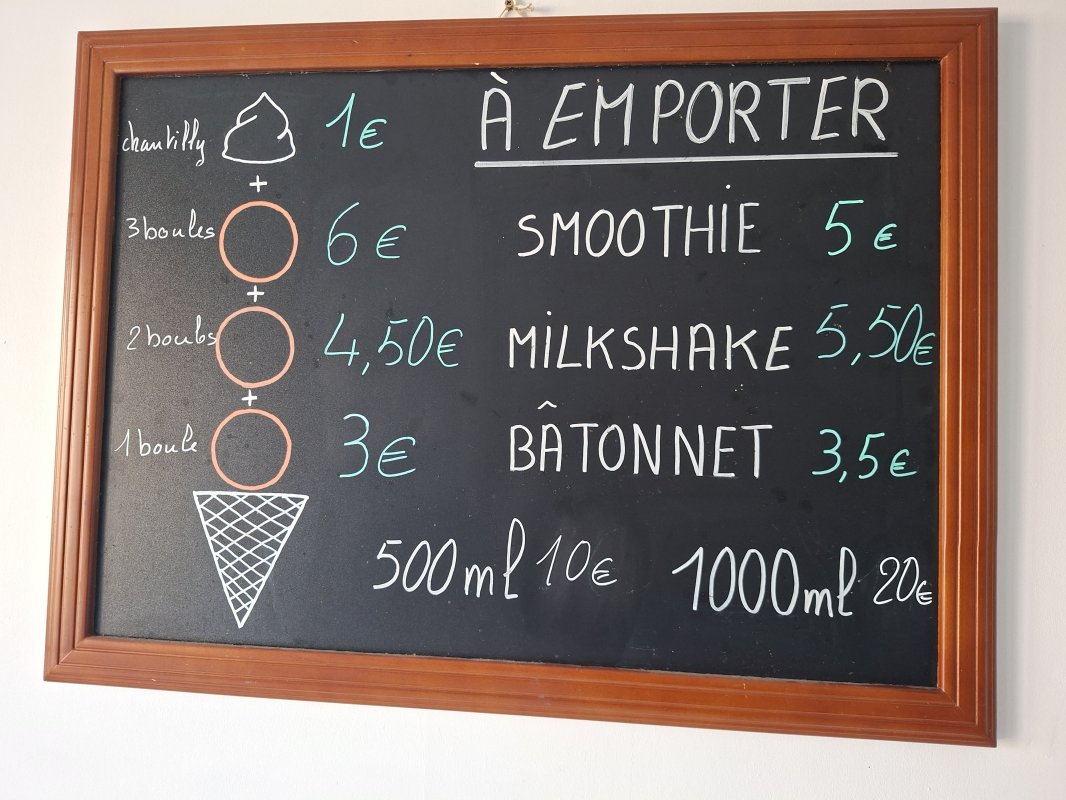 À EMPORTER
chantilly 1€
+
3 boules 6€
+
2 boules 4,50€
+
1 boule 3€
SMOOTHIE 5€
MILKSHAKE 5,50€
BÂTONNET 3,5€
500ml 10€ 1000ml 20€